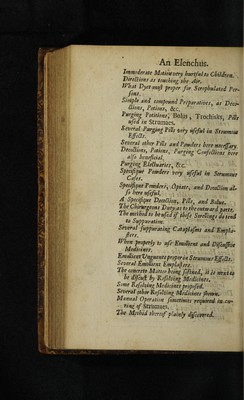 An Elenchus.
Immoderate Motion very hurtful to Children.
Directions as touching the Air.
What Dyet most proper for Strophulated Per-
sons.
Simple and compound Preparatives, as Deco-
ctions, Potions, &c.
Purging Potitions, Bolus, Trochisks, Pills
used in Strumaes.
Several Purging Pills very useful in Strumous
Effects.
Several other Pills and Powders here necessary
Decoctions, Potions, Purging Confections here
also beneficial.
Purging Electuaries, &c.
Specifique Powders very useful in Strumous
Cases.
Specifique Powders, Opiats, and Decoctions al-
so here useful.
A Specifique Decoction, Pills, and Bolus.
The Chirurgeons Duty as to the outward parts.
The method to be used if these Swellings do tend
to Suppuration.
Several suppurating Cataplasms and Empla-
sters.
When properly to use Emollient and Discussive
Medicines.
Emollient Unguents proper in Strumous Effects.
Several Emollient Emplasters.
The concrete Matter being softned, it is next to
be discust by Resolving Medicines.
Some Resolving Medicines proposed.
Several other Resolving Medicines shown.
Manual Operation sometimes required in cu-
ring of Strumaes.
The Method thereof plainly discovered.